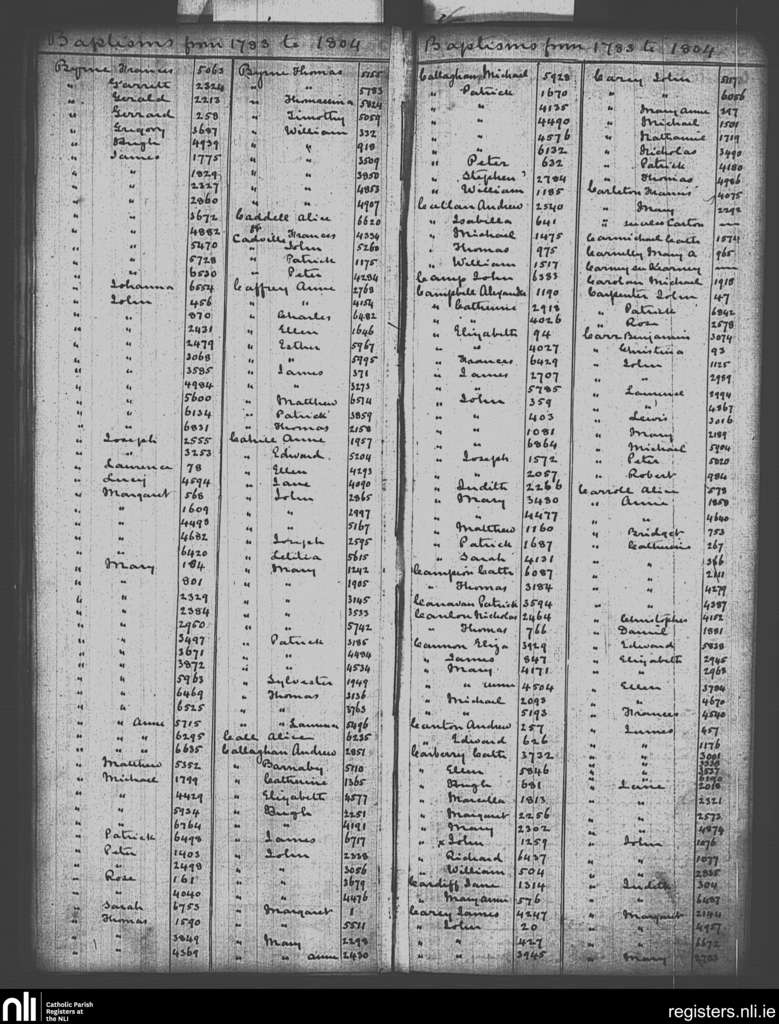 Baptisms from 1783 to 1804
Byrne Frances 5063
" Garrett 2324
" Gerald 2213
" Gerrard 258
" Gregory 3687
" Hugh 4939
" James 1775
" " 1829
" " 2327
" " 2860
" " 3672
" " 4882
" " 5470
" " 5728
" " 6530
" Johanna 6554
" John 456
" " 870
" " 2431
" " 2479
" " 3068
" " 3585
" " 4984
" " 5600
" " 6134
" " 6831
" Joseph 2555
" " 3253
" Laurence 78
" Lucy 4594
" Margaret 568
" " 1609
" " 4498
" " 4682
" " 6420
" Mary 184
" " 801
" " 2329
" " 2384
" " 2950
" " 3497
" " 3671
" " 3872
" " 5963
" " 6469
" " 6525
" " Anne 5715
" " " 6295
" " " 6635
" Matthew 5352
" Michael 1799
" " 4429
" " 5934
" " 6764
" Patrick 6498
" Peter 1403
" " 2498
" Rose 161
" " 4040
" Sarah 6753
" Thomas 1590
" " 3849
" " 4369
Byrne Thomas 5155
" " 5783
" Thomasina 5824
" Timothy 5059
" William 332
" " 918
" " 3509
" " 3850
" " 4853
" " 4907
Caddell Alice 6620
Frances 4334
" John 5260
" Patrick 1175
" Peter 4284
Caffrey Anne 2763
" " 4154
" Charles 6482
" Ellen 1646
" Esther 5967
" " 5795
" James 371
" " 3273
" Matthew 6574
" Patrick 3859
" Thomas 2158
Cahill Anne 1957
" Edward 5204
" Ellen 4293
" Jane 4090
" John 2865
" " 2997
" " 5167
" Joseph 2595
" Letitia 5615
" Mary 1242
" " 1905
" " 3145
" " 3533
" " 5742
" Patrick 3185
" " 4484
" " 4534
" Sylvester 1949
" Thomas 3136
" " 3763
" " 5496
Call Alice 6235
Callaghan Andrew 2851
" Barnaby 5110
" Catherine 1365
" Elizabeth 4577
" Hugh 2251
" " 4191
" James 6717
" John 2338
" " 3056
" " 3679
" " 4476
" Margaret 1
" " 5511
" Mary 2298
" " Anne 2430
Baptisms from 1783 to 1804
Callaghan Michael 5928
" Patrick 1670
" " 4135
" " 4490
" " 4576
" " 6132
" Peter 632
" Stephen 2784
" William 1185
Callan Andrew 2540
" Isabella 641
" Michael 1475
" Thomas 975
" William 1517
Camp John 6383
Campbell Alexander 1190
" Catherine 2918
" " 4026
" Elizabeth 94
" " 4027
" Frances 6429
" James 2707
" " 5785
" John 359
" " 403
" " 1081
" " 6864
" Joseph 1572
" " 2057
" Judith 2266
" Mary 3480
" " 4477
" Matthew 1160
" Patrick 1687
" Sarah 4131
Campion Cath 6087
" Thomas 3184
Canavan Patrick 3594
Canlon Nicholas 2464
" Thomas 766
Cannon Eliza 3929
" James 847
" Mary 4171
" " Anne 4504
" Michael 2093
" " 5193
Canton Andrew 257
" Edward 626
Carberry Cath 3732
" Ellen 5846
" Hugh 681
" Marcella 1813
" Margaret 2256
" Mary 2302
" x John 1259
" Richard 6437
" William 504
Cardiff Jane 1314
" Mary Anne 576
Carey James 4247
" John 20
" " 427
" " 3945
Carey John 5157
" " 6056
" Mary Anne 397
" Michael 1501
" Nathaniel 1719
" Nicholas 3490
" Patrick 4180
" Thomas 4986
Carleton Francis 4075
" Mary 2292
Carmichael Cath 1574
Mary A 965
Carney see Kearney
Carolan Michael 1918
Carpenter John 47
" Patrick 6842
" Rose 2578
Carr Benjamin 3074
" Christina 93
" John 1125
" " 2989
" Laurence 2994
" " 4867
" Lewis 3016
" Mary 2189
" Michael 5904
" Peter 5020
" Robert 984
Carroll Alice 578
" Anne 1858
" " 4640
" Bridget 753
" Catherine 267
" " 1366
" " 2141
" " 4279
" " 4387
" Christopher 4152
" Daniel 1881
" Edward 5838
" Elizabeth 2945
" " 2963
" Ellen 3784
" " 4670
" Frances 4540
" James 457
" " 1176
" " 3001
" " 3338
" " 3537
" " 6290
" Jane 2010
" " 2321
" " 2573
" " 4874
" John 1076
" " 1077
" " 2335
" Judith 304
" " 6487
" Margaret 2144
" " 4957
" " 6672
" Mary 2703
nli
Catholic Parish
Registers at
the NLI
registers.nli.ie